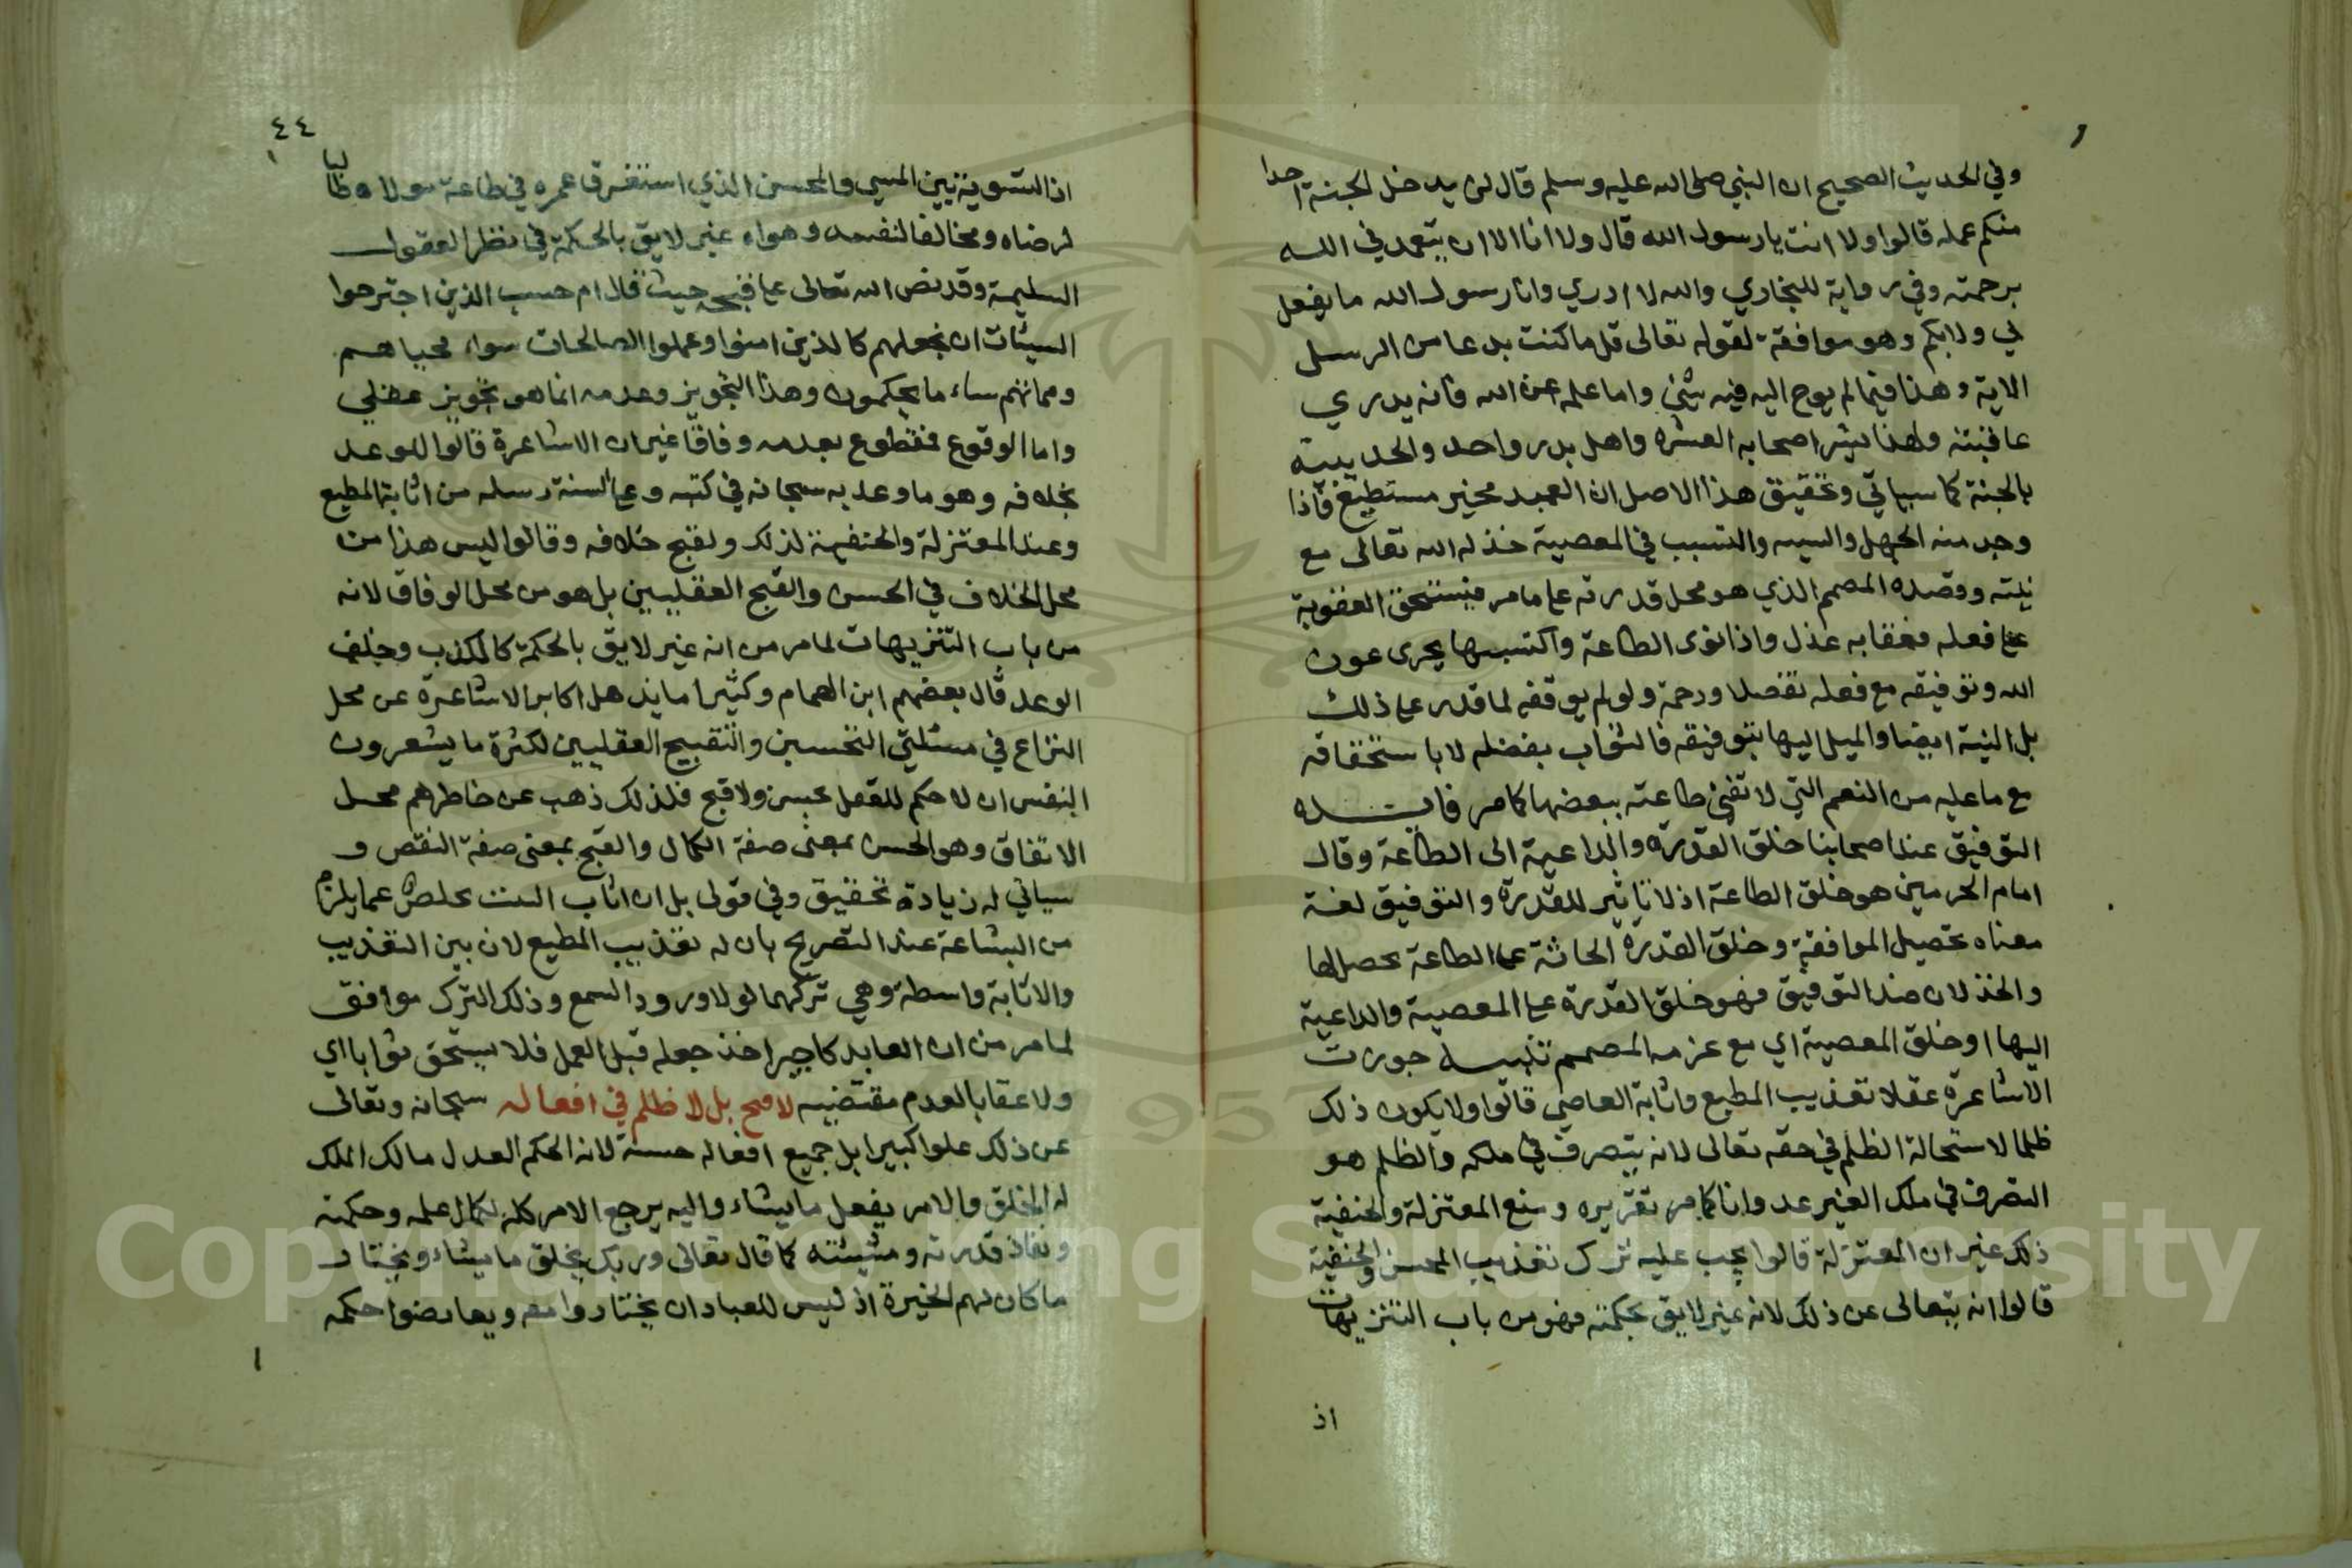 وفي الحديث الصحيح ان النبي صلى الله عليه وسلم قال لن يدخل الجنة احدا
منكم عمله قالوا ولا انت يا رسول الله قال ولا انا الا ان يتغمدني الله
برحمته وفي رواية للبخاري والله لا ادري وانا رسول الله ما يفعل
لي ولا بكم وهو موافقة لقوله تعالى قل ما كنت بدعا من الرسل
الاية وهذا فيما لم يوح اليه فيه شئ واما علمه عن الله فانه يدري
عاقبته ولهذا بشر اصحابه العشره واهل بدر واحد والحديبية
بالجنة كما سياتي وتحقيق هذا الاصل ان العبد مخير مستطيع فاذا
وجد منه الجهل والسيه والتسبب في المعصية خذله الله تعالى مع
نيته وقصده المصمم الذي هو محل قدرته على ما مر فيستحق العقوبة
على فعله فعقابه عدل واذا نوى الطاعة واكتسبها يجرى عون
الله وتوفيقه مع فعله تفضلا ورحمة ولو لم يوفقه لما قدر على ذلك
بل النية ايضا والميل اليها بتوفيقه فالثواب بفضله لا باستحقاقه
مع ما عليه من النعم التي لا تفي طاعته ببعضها كما مر فايده
التوفيق عند اصحابنا خلق القدرة والداعية الى الطاعة وقال
امام الحرمين هو خلق الطاعة اذ لا تاثير للقدرة والتوفيق لغة
معناه تحصيل الموافقة وخلق القدرة الحادثة على الطاعة يحصلها
والخذلان ضد التوفيق فهو خلق القدرة على المعصية والداعية
اليها او خلق المعصية اي مع عزمه المصمم تنبيه جوزت
الاشاعرة عقلا تعذيب المطيع واثابة العاصي قالوا ولا يكون ذلك
ظلما لاستحالة الظلم في حقه تعالى لانه يتصرف في ملكه والظلم هو
التصرف في ملك الغير عدوانا كما مر تقريره ومنع المعتزلة والحنفية
ذلك غير ان المعتزلة قالوا يجب عليه ترك تعذيب المحسن والحنفية
قالوا انه يتعالى عن ذلك لانه غير لايق بحكمته فهو من باب التنزيهات
اذ
٤٤
اذ التسوية بين المسي والمحسن الذي استغرق عمره في طاعة مولاه طالبا
لرضاه ومخالفا لنفسه وهواه غير لايق بالحكمة في نظر العقول
السليمة وقد نص الله تعالى على قبحه حيث قال ام حسب الذين اجترحوا
السيئات ان نجعلهم كالذين امنوا وعملوا الصالحات سواء محياهم
ومماتهم ساء ما يحكمون وهذا التجويز وعدمه انما هو تجويز عقلي
واما الوقوع فمقطوع بعدمه وفاقا غير ان الاشاعرة قالوا للوعد
بخلافه وهو ما وعد به سبحانه في كتبه وعلى السنة رسله من اثابة المطيع
وعند المعتزلة والحنفية لذلك ولقبح خلافه وقالوا ليس هذا من
محل الخلاف في الحسن والقبح العقليين بل هو من محل الوفاق لانه
من باب التنزيهات لما مر من انه غير لايق بالحكمة كالكذب وخلف
الوعد قال بعضهم ابن الهمام وكثيرا ما يذهل اكابر الاشاعرة عن محل
النزاع في مسئلتي التحسين والتقبيح العقليين لكثرة ما يشعرون
النفس ان لا حكم للعقل بحسن ولا قبح فلذلك ذهب عن خاطرهم محل
الاتفاق وهو الحسن بمعنى صفة الكمال والقبح بمعنى صفة النقص و
سياتي له زيادة تحقيق وفي قولي بل ان اثاب الننت تخلص عما يلزم
من البشاعة عند التصريح بان له تعذيب المطيع لان بين التعذيب
والاثابة واسطة وهي تركهما لولا ورود السمع وذلك الترك موافق
لما مر من ان العابد كاجير اخذ جعله قبل العمل فلا يستحق ثوابا اي
ولا عقابا لعدم مقتضيه لا قبح بل لا ظلم في افعاله سبحانه وتعالى
عن ذلك علوا كبيرا بل جميع افعاله حسنة لانه الحكم العدل مالك الملك
له الخلق والامر يفعل ما يشاء واليه يرجع الامر كله لكمال علمه وحكمته
ونفاذ قدرته ومشيئته كما قال تعالى وربك يخلق ما يشاء ويختار
ما كان لهم الخيرة اذ ليس للعباد ان يختاروا معه ويعارضوا حكمه
Copyright © King Saud University
1957